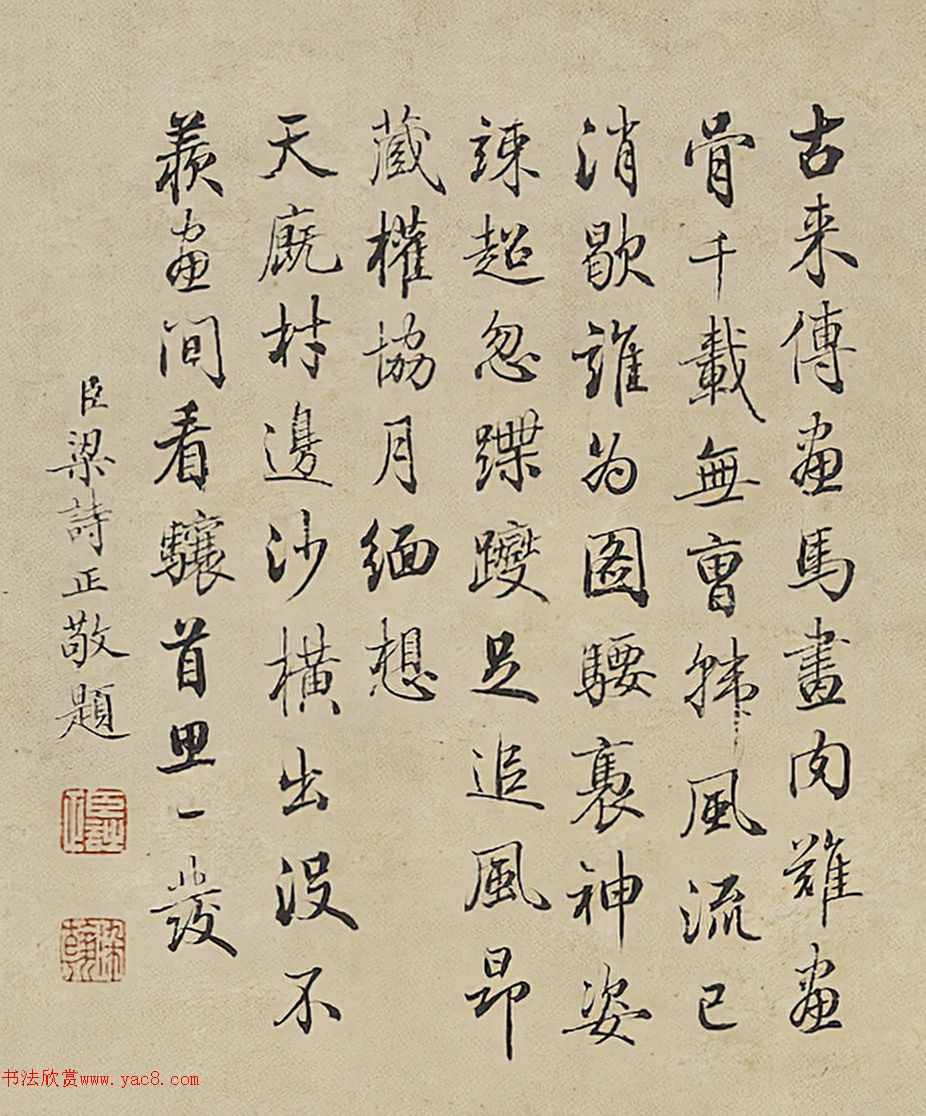 古来傳畫馬畫肉難畫
骨千載無曹韓風流已
消歇誰為圖騕褭神姿
竦超忽蹀躞足追風昂
藏權協月緬想
天厩材邊沙橫出沒不
羨畫間看驤首思一發
臣梁詩正敬題
书法欣赏www.yac8.com